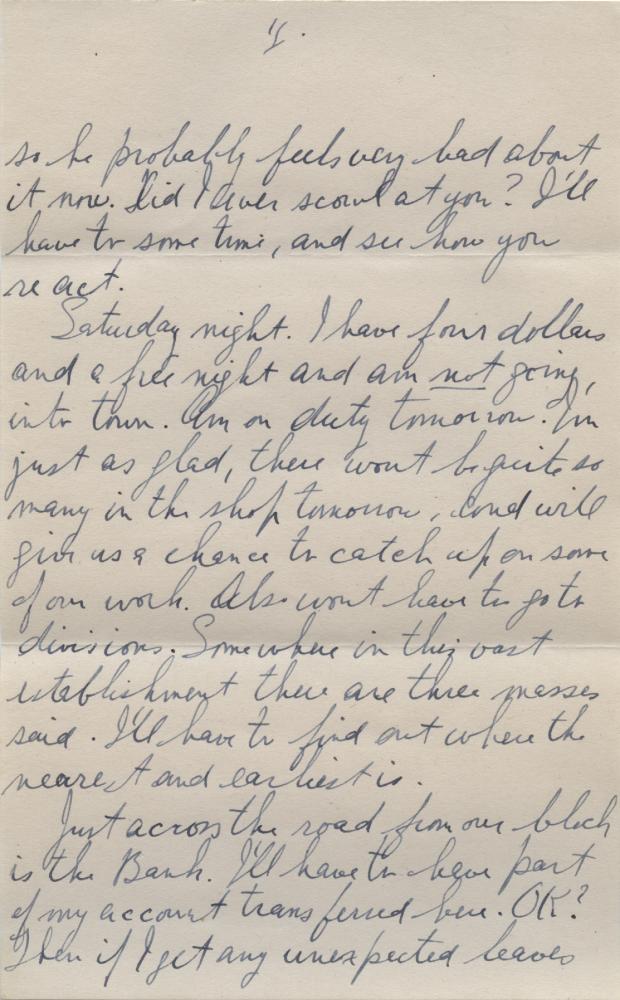 so he probably feels very bad about
it now. Did I ever scowl at you? I'll
have to some time, and see how you
re act.
Saturday night. I have four dollars
and a free night and am not going,
into town. Am on duty tomorrow. I'm
just as glad, there wont be quite so
many in the shop tomorrow, and will
give us a chance to catch up on some
of our work. Also wont have to go to
divisions. Somewhere in this vast
establishment there are three masses
said. I'll have to find out where the
nearest and earliest is.
Just across the road from our block
is the Bank. I'll have to have part
of my account transferred here. OK?
Then if I get any unexpected leaves